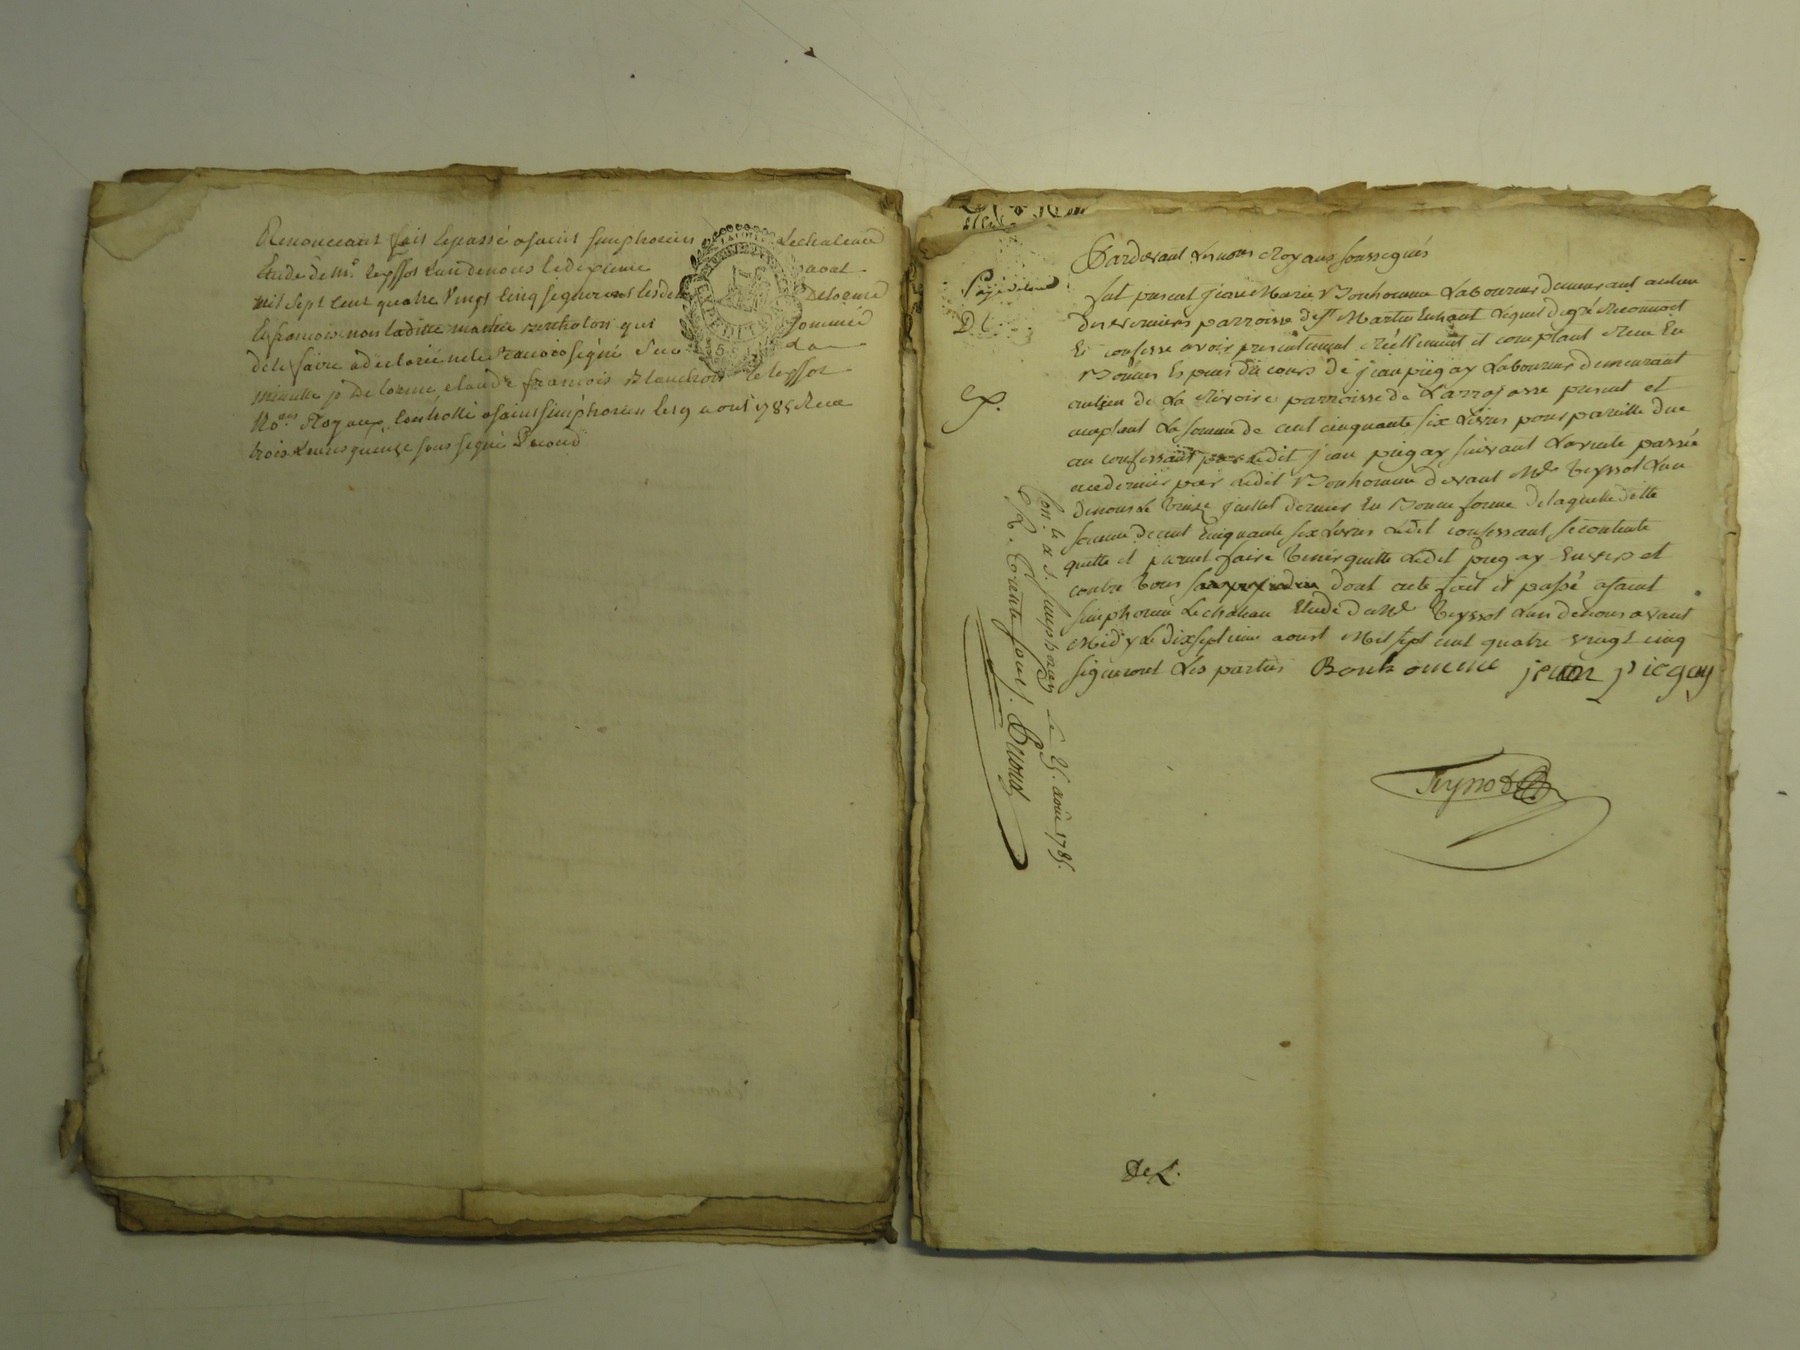 Renonceant fait et passé a saint simphorien Lechateaud
Etude de Me. teyssot L'un de nous le dixieme aoust
mil sept cent quatre Vingt Cinq signeront les Delorme
et francois non laditte mathie qui sommée
de le faire a declarée ne le francois signé
minutte jp Delorme, claude francois Blanchon teyssot
No.res Royaux, Controllé a saint simphorien le 19 aout 1785 Receu
trois Livres quinze sous signé Picoud
Pardevant Les nott Royaux soussignés
fut present jean Marie Bonhomme Laboureur demeurant au lieu
des verniers parroisse de st Martin Enhaut Lequel de gré Reconnoit
Et confesse avoir presentement réellement et comptant Receu En
Bonnes Especes du cours de jean pieg ay Laboureur demeurant
au lieu de La Rivoire parroisse de Larrajasse present et
acceptant La somme de cent cinquante six Livres pour pareille due
au confessant par Ledit jean piegay suivant La vente passée
a ce dernier par Ledit Bonhomme devant Me teyssot L'un
de nous le treize juillet dernier En Bonne forme de laquelle ditte
somme de cent Cinquante six Livres Ledit confessant se contente
quitte et promet faire tenir quitte Ledit piegay Envers et
contre tous dont acte fait et passé a saint
simphorien Lechateau Etude du Me teyssot L'un de nous avant
Midy Le dix septieme aoust Mil sept cent quatre vingt cinq
signeront Les parties Bonhomme jean piegay
Con.lé a S. simphorien Le 25. août 1785.
R. Trente sous. Picoud
Teyssot
De L.